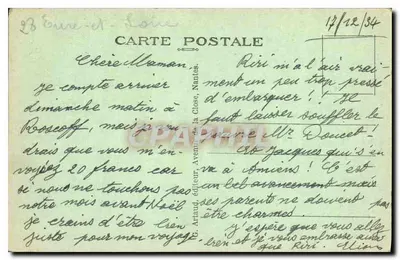 28 Eure-et-Loir
17/12/34
CARTE POSTALE
Chère Maman.
Je compte arriver
dimanche matin à
Roscoff, mais je vou
drais que vous m'en
voyiez 20 francs car
je nous ne touchons pas
notre mois avant Noël
je crains d'être bien
juste pour mon voyage.
G. Artaud, Éditeur, Nantes.
Riri m'a l'air vrai
ment un peu trop pressé
d'embarquer! Je
faut laisser souffler le
pauvre Mr Doucet!
Et Jacques qui s'en
va à Amiens! C'est
un bel avancement mais
ses parents ne doivent pas
être charmés.
J'espère que vous allez
bien et je vous embrasse ainsi
que Riri.